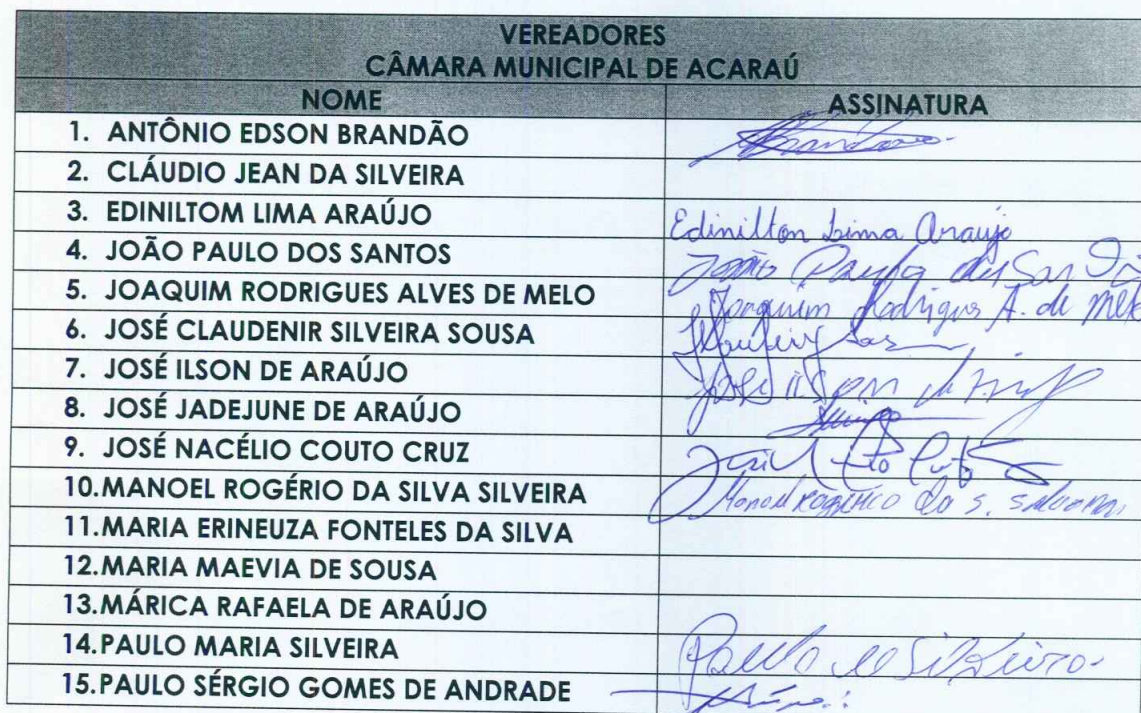 VEREADORES
CÂMARA MUNICIPAL DE ACARAÚ
NOME ASSINATURA
1. ANTÔNIO EDSON BRANDÃO
2. CLÁUDIO JEAN DA SILVEIRA
3. EDINILTOM LIMA ARAÚJO Edinilton Lima Araujo
4. JOÃO PAULO DOS SANTOS João Paulo dos San
5. JOAQUIM RODRIGUES ALVES DE MELO Joaquim Rodrigues A. de Melo
6. JOSÉ CLAUDENIR SILVEIRA SOUSA
7. JOSÉ ILSON DE ARAÚJO José ilson de
8. JOSÉ JADEJUNE DE ARAÚJO
9. JOSÉ NACÉLIO COUTO CRUZ
10.MANOEL ROGÉRIO DA SILVA SILVEIRA Manoel Rogério da S. Silveira
11.MARIA ERINEUZA FONTELES DA SILVA
12.MARIA MAEVIA DE SOUSA
13.MÁRICA RAFAELA DE ARAÚJO
14.PAULO MARIA SILVEIRA Paulo M Silveira
15.PAULO SÉRGIO GOMES DE ANDRADE